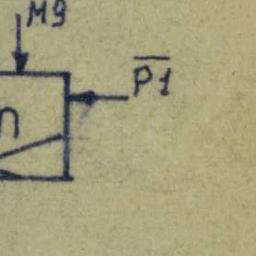 M9
P1
n